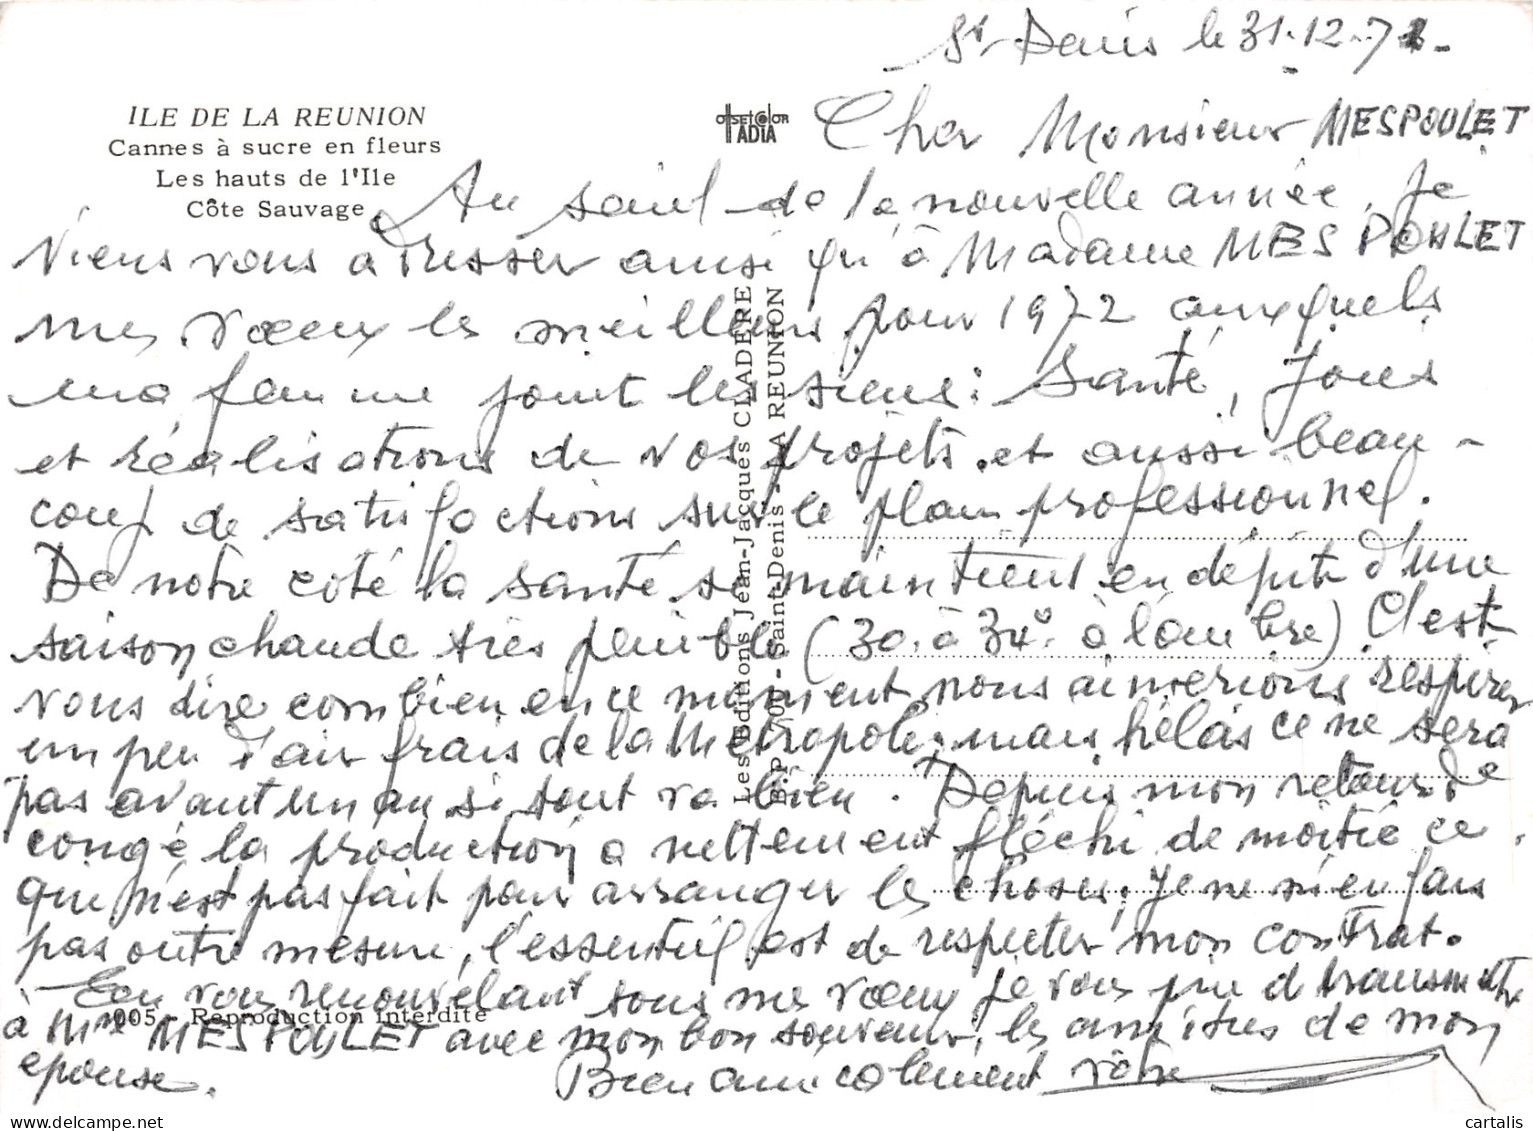 St Denis le 31.12.71.
ILE DE LA REUNION
Cannes à sucre en fleurs
Les hauts de l'Ile
Côte Sauvage
offsetcolor
ADIA
Cher Monsieur MESPOULET
Au seuil de la nouvelle année, je
viens vous adresser ainsi qu'à Madame MESPOULET
mes vœux les meilleurs pour 1972 auxquels
ma femme joint les siens : Santé, Joies
et réalisations de vos projets et aussi beau-
coup de satisfactions sur le plan professionnel.
De notre coté la santé se maintient en dépit d'une
saison chaude très pénible (30 à 34° à l'ombre) C'est
vous dire combien en ce moment nous aimerions respirer
un peu d'air frais de la Métropole, mais hélas ce ne sera
pas avant un an si tout va bien. Depuis mon retour de
congé la production a nettement fléchi de moitié ce
qui n'est pas fait pour arranger les choses, je ne m'en fais
pas outre mesure, l'essentiel est de respecter mon contrat.
En vous renouvelant tous mes vœux je vous prie d transmettre
à Mme MESPOULET avec mon bon souvenir, les amitiés de mon
epouse.
Bien amicalement vôtre
Les Editions Jean-Jacques CLADERE
B.P. - Saint-Denis - LA REUNION
005 - Reproduction interdite
delcampe.net
cartalis